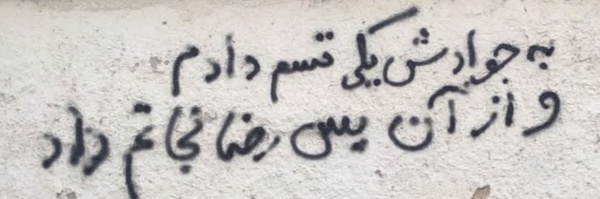 به جوادش یکی قسم دادم
و از آن پس رضا نجاتم داد